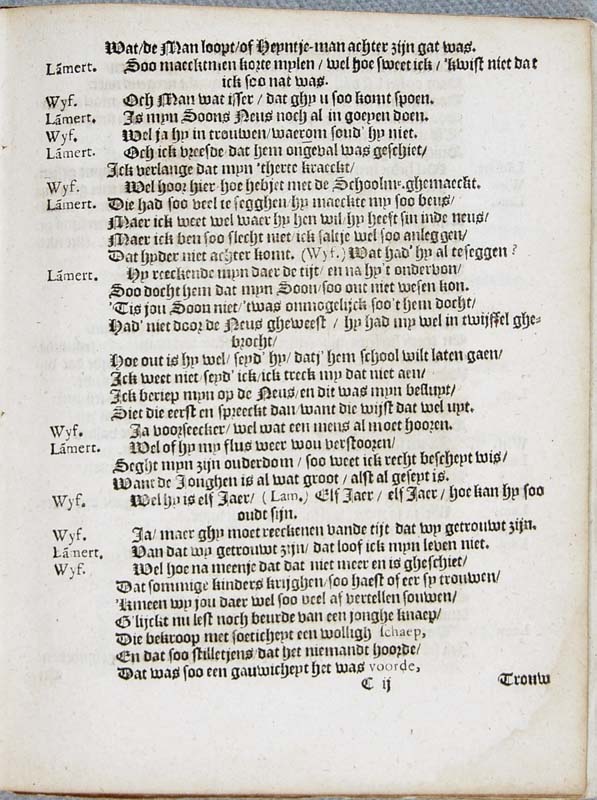 Wat/de Man loopt/of Heyntje-man achter zijn gat was.
Lãmert. Soo maecktmen korte mylen / wel hoe sweet ick / 'kwist niet dat
ick soo nat was.
Wyf. Och Man wat isser / dat ghy u soo komt spoen.
Lãmert. Is myn Soons Neus noch al in goeyen doen.
Wyf. Wel ja hy in trouwen/waerom soud' hy niet.
Lãmert. Och ick vreesde/dat hem ongeval was geschiet/
Ick verlange dat myn 'therte kraeckt/
Wyf. Wel hoor hier/hoe hebjet met de Schoolmr. ghemaeckt.
Lãmert. Die had soo veel te segghen/hy maeckte my soo beus/
Maer ick weet wel waer hy hen wil/hy heeft sin inde neus/
Maer ick ben soo slecht niet/ick saltje wel soo anleggen/
Dat hyder niet achter komt. (Wyf.) Wat had' hy al te seggen?
Lãmert. Hy reeckende myn daer de tijt/en na hy't ondervon/
Soo docht hem dat myn Soon/soo out niet wesen kon.
'Tis jou Soon niet/'twas onmogelijck soo't hem docht/
Had' niet door de Neus gheweest / hy had my wel in twijffel ghe-
brocht/
Hoe out is hy wel/seyd' hy/datj' hem school wilt laten gaen/
Ick weet niet/seyd' ick/ick treck my dat niet aen/
Ick beriep myn op de Neus/en dit was myn besluyt/
Siet die eerst en spreeckt dan/want die wijst dat wel uyt.
Wyf. Ja voorseecker/wel wat een mens al moet hooren.
Lãmert. Wel of hy my flus weer wou verstooren/
Seght myn zijn ouderdom / soo weet ick recht bescheyt wis/
Want de Jonghen is al wat groot/alst al geseyt is.
Wyf. Wel hy is elf Jaer/ (Lam.) Elf Jaer/ elf Jaer / hoe kan hy soo
oudt sijn.
Wyf. Ja/ maer ghy moet reeckenen vande tijt dat wy getrouwt zijn.
Lãmert. Van dat wy getrouwt zijn/ dat loof ick myn leven niet.
Wyf. Wel hoe na meenje dat dat niet meer en is gheschiet/
Dat sommige kinders krijghen/soo haest of eer sy trouwen/
'Kmeen wy jou daer wel soo veel af vertellen souwen/
G'lijckt nu lest noch beurde van een jonghe knaep/
Die bekroop met soeticheyt een wolligh schaep,
En dat soo stilletjens/dat het niemandt hoorde/
Dat was soo een gauwicheyt het was voorde,
C ij Trouw